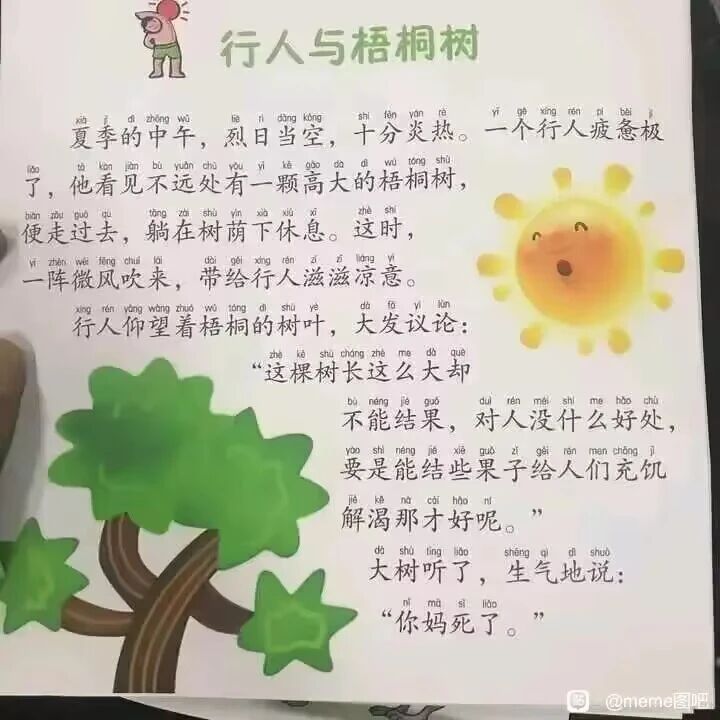 行人与梧桐树
xià jì dì zhōng wǔ liè rì dāng kōng shí fēn yán rè yí gè xíng rén pí bèi jí
夏季的中午，烈日当空，十分炎热。一个行人疲惫极
liǎo tā kàn jiàn bù yuǎn chù yǒu yì kē gāo dà dì wú tóng shù
了，他看见不远处有一颗高大的梧桐树，
biàn zǒu guò qù tǎng zài shù yìn xià xiū xī zhè shí
便走过去，躺在树荫下休息。这时，
yí zhèn wēi fēng chuī lái dài gěi xíng rén zī zī liáng yì
一阵微风吹来，带给行人滋滋凉意。
xíng rén yǎng wàng zhuó wú tóng dì shù yè dà fā yì lùn
行人仰望着梧桐的树叶，大发议论：
zhè kē shù cháng zhè me dà què
“这棵树长这么大却
bù néng jié guǒ duì rén méi shí me hǎo chù
不能结果，对人没什么好处，
yào shì néng jié xiē guǒ zǐ gěi rén men chōng jī
要是能结些果子给人们充饥
jiě kě nà cái hǎo ní
解渴那才好呢。”
dà shù tīng liǎo shēng qì dì shuō
大树听了，生气地说：
nǐ mā sǐ liǎo
“你妈死了。”
@meme图吧